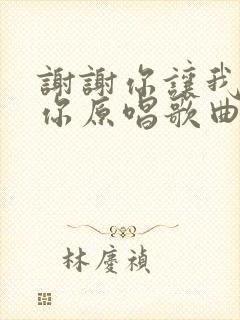 謝謝你讓我
你原唱歌曲
林慶禎